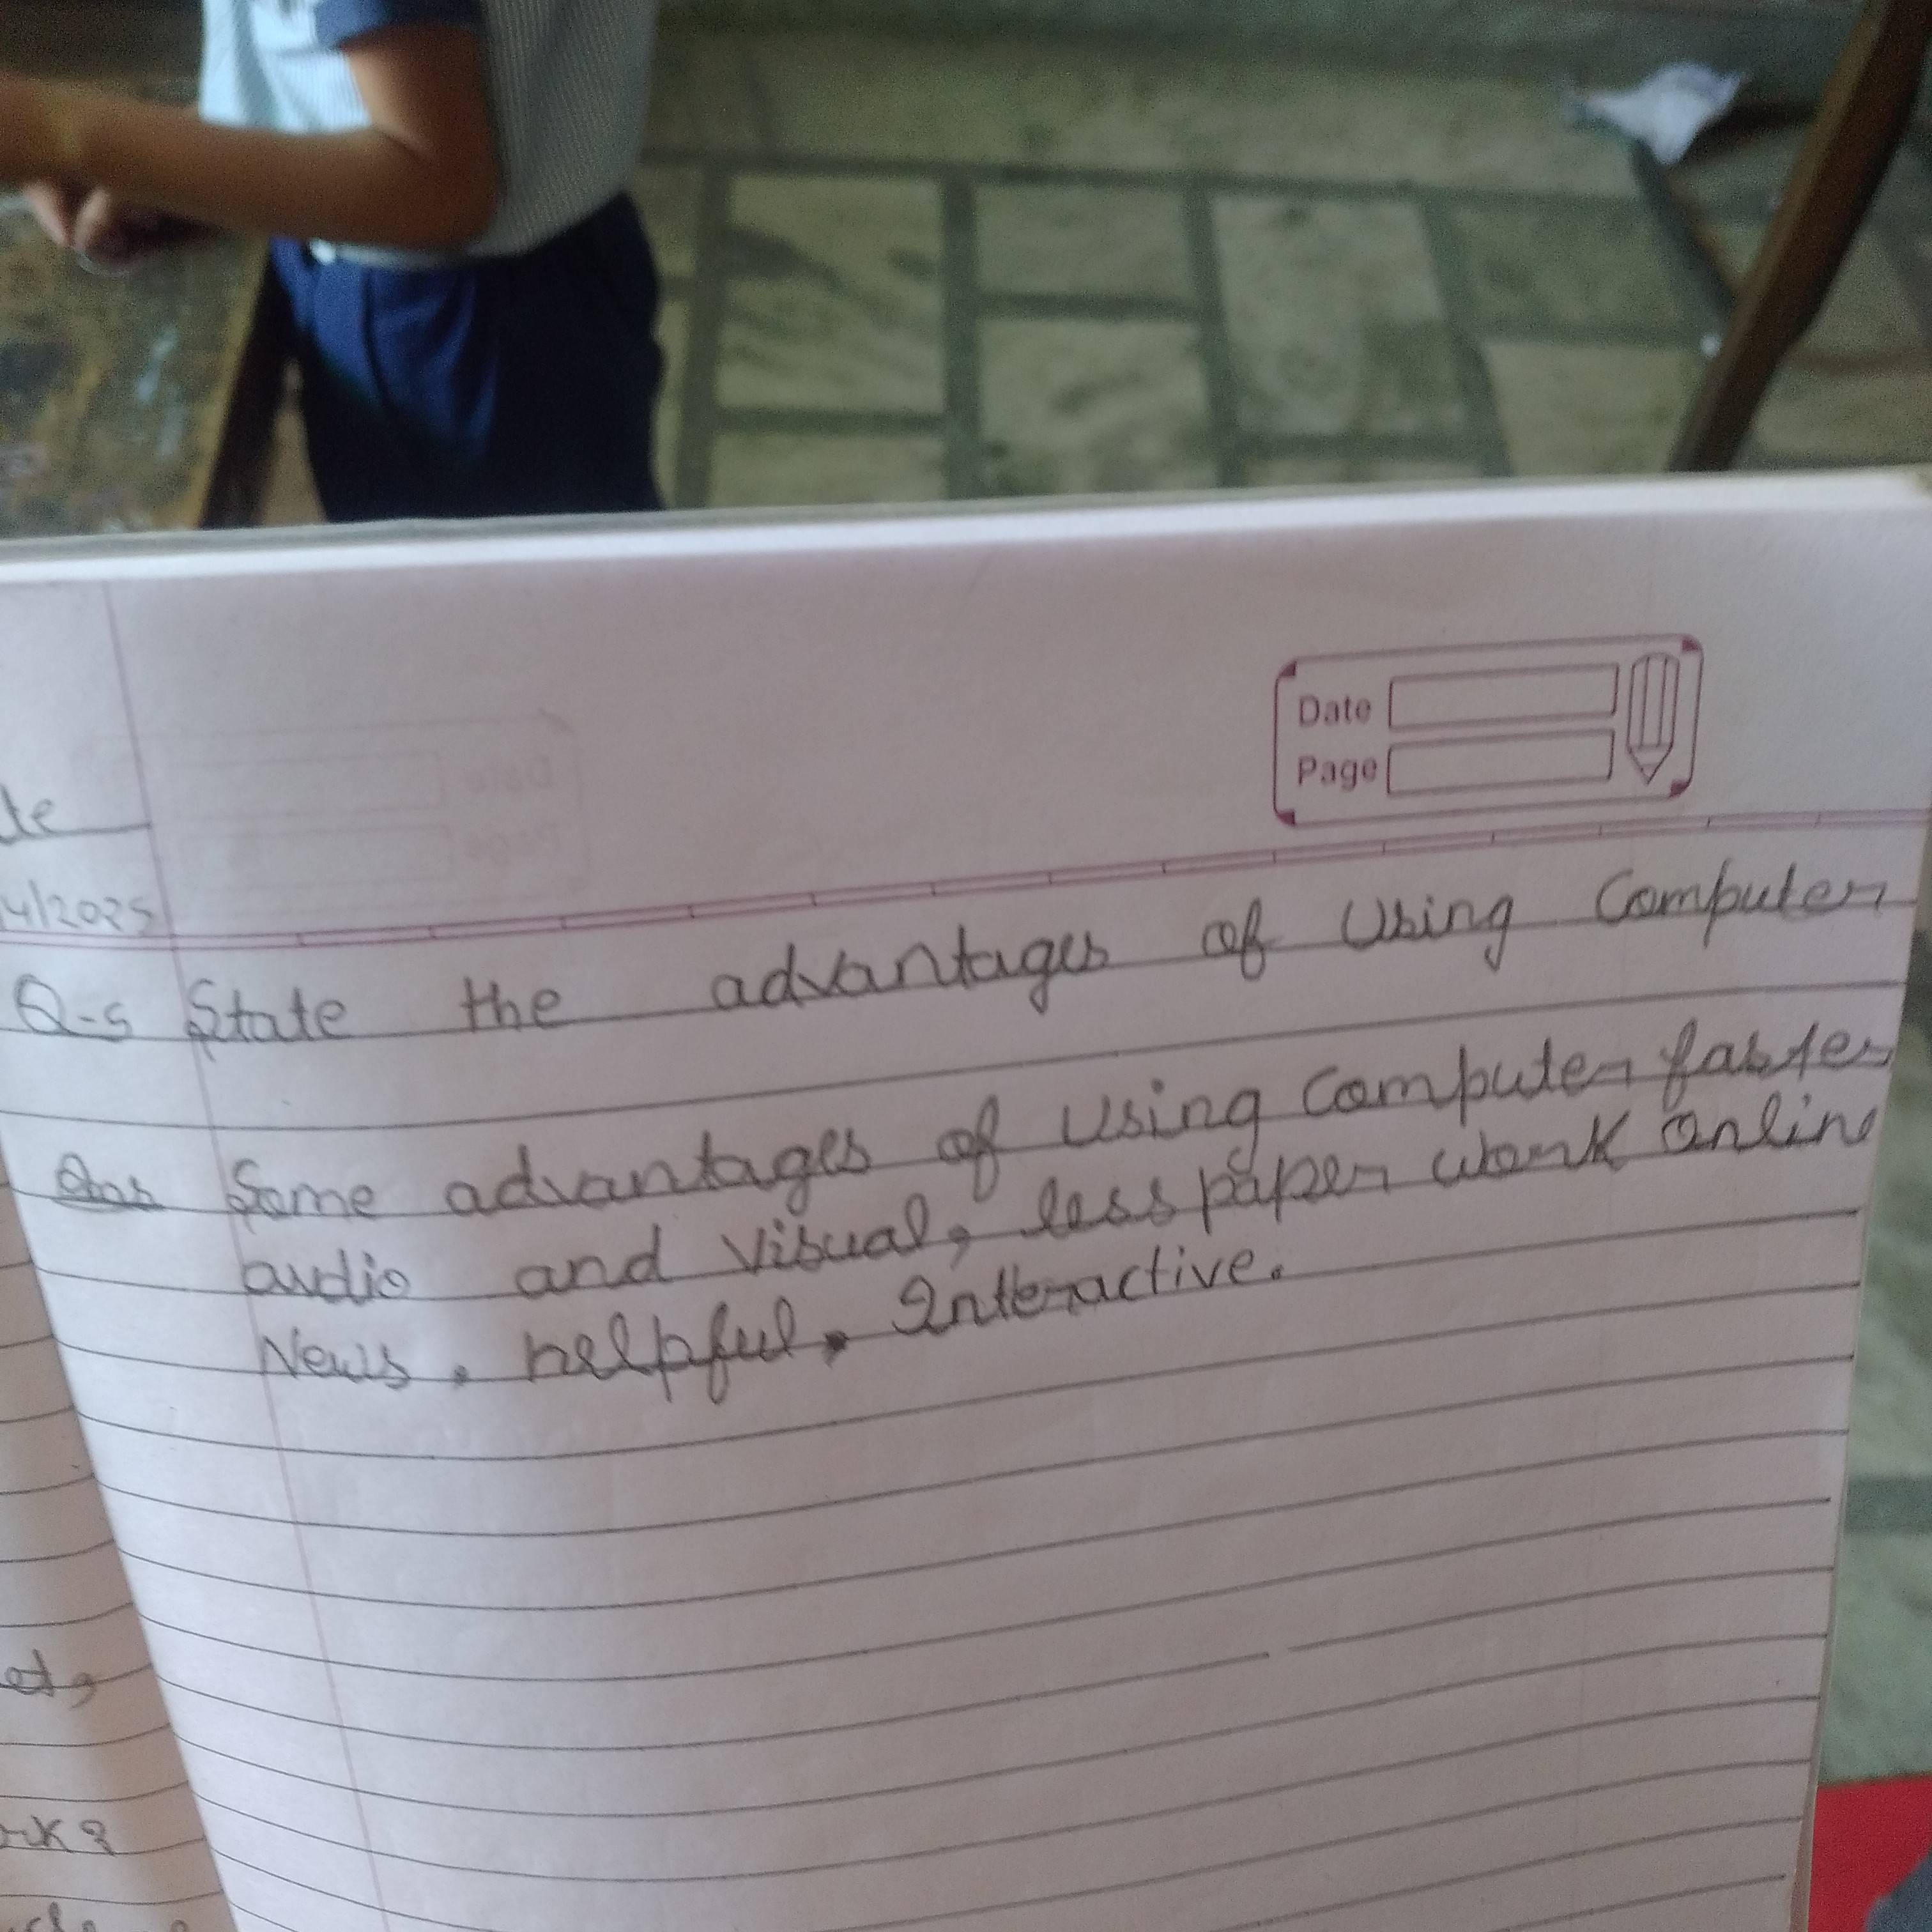 Date
Page
te
4/2025
Q-5 State the advantages of Using Computer
Ans Some advantages of Using Computer faster
audio and Visual, less paper work Online
News. helpful, Interactive.
et,
ork?